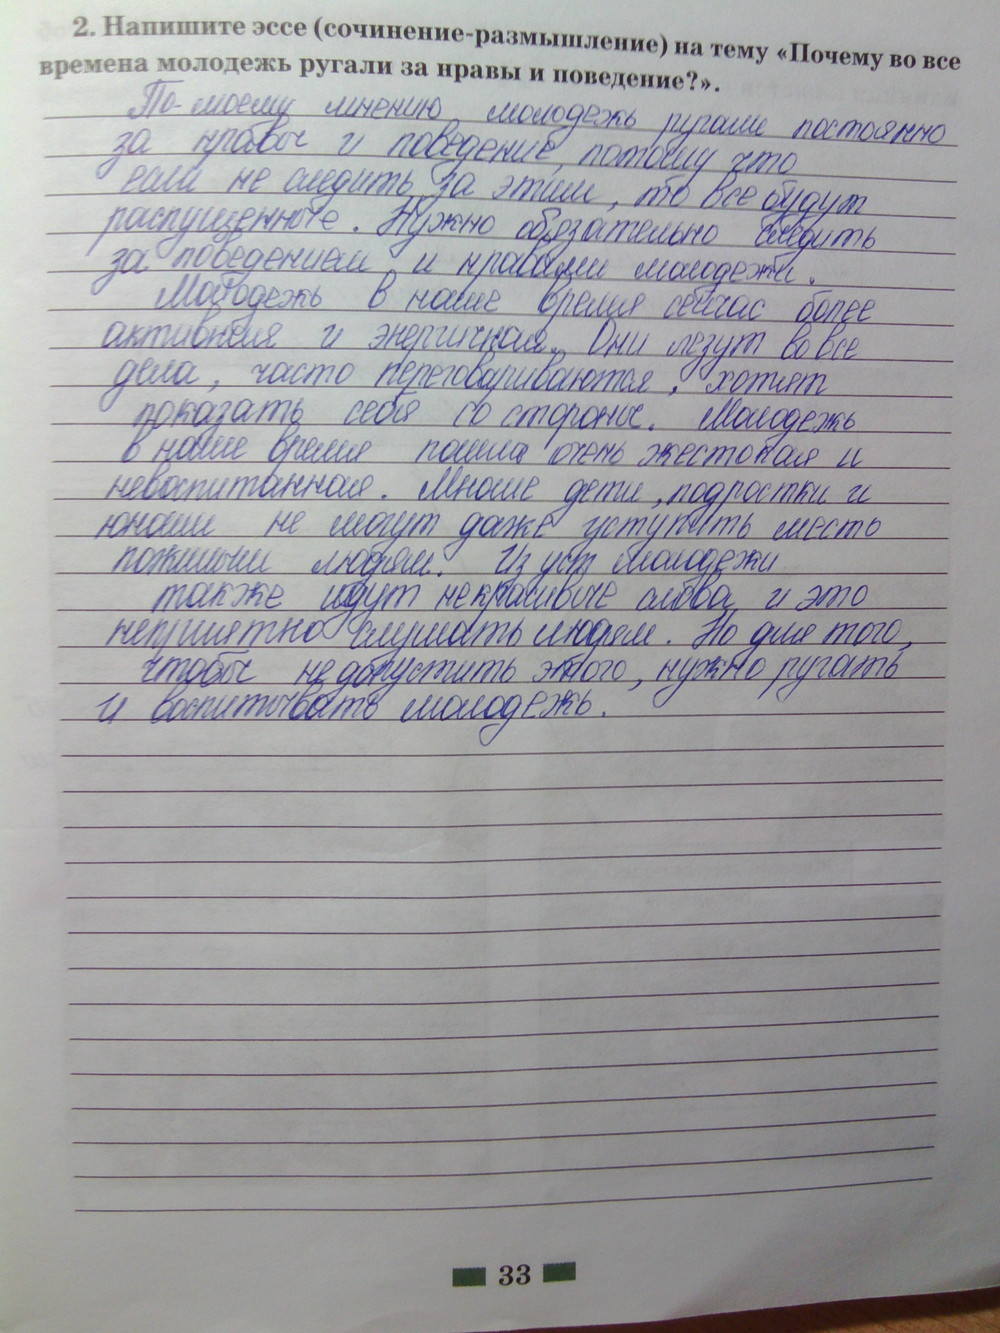 2. Напишите эссе (сочинение-размышление) на тему «Почему во все
времена молодежь ругали за нравы и поведение?».
По-моему мнению молодежь ругали постоянно
за нравы и поведение, потому что
если не следить за этим, то все будут
распущенные. Нужно обязательно следить
за поведением и нравами молодежи.
Молодежь в наше время сейчас более
активная и энергичная. Они лезут во все
дела, часто переговариваются, хотят
показать себя со стороны. Молодежь
в наше время пошла очень жестокая и
невоспитанная. Многие дети, подростки и
юноши не могут даже уступить месть
пожилым людям. Из уст молодежи
также идут некрасивые слова и это
неприятно слушать людям. Но для того,
чтобы не допустить этого, нужно ругать
и воспитывать молодежь.
33